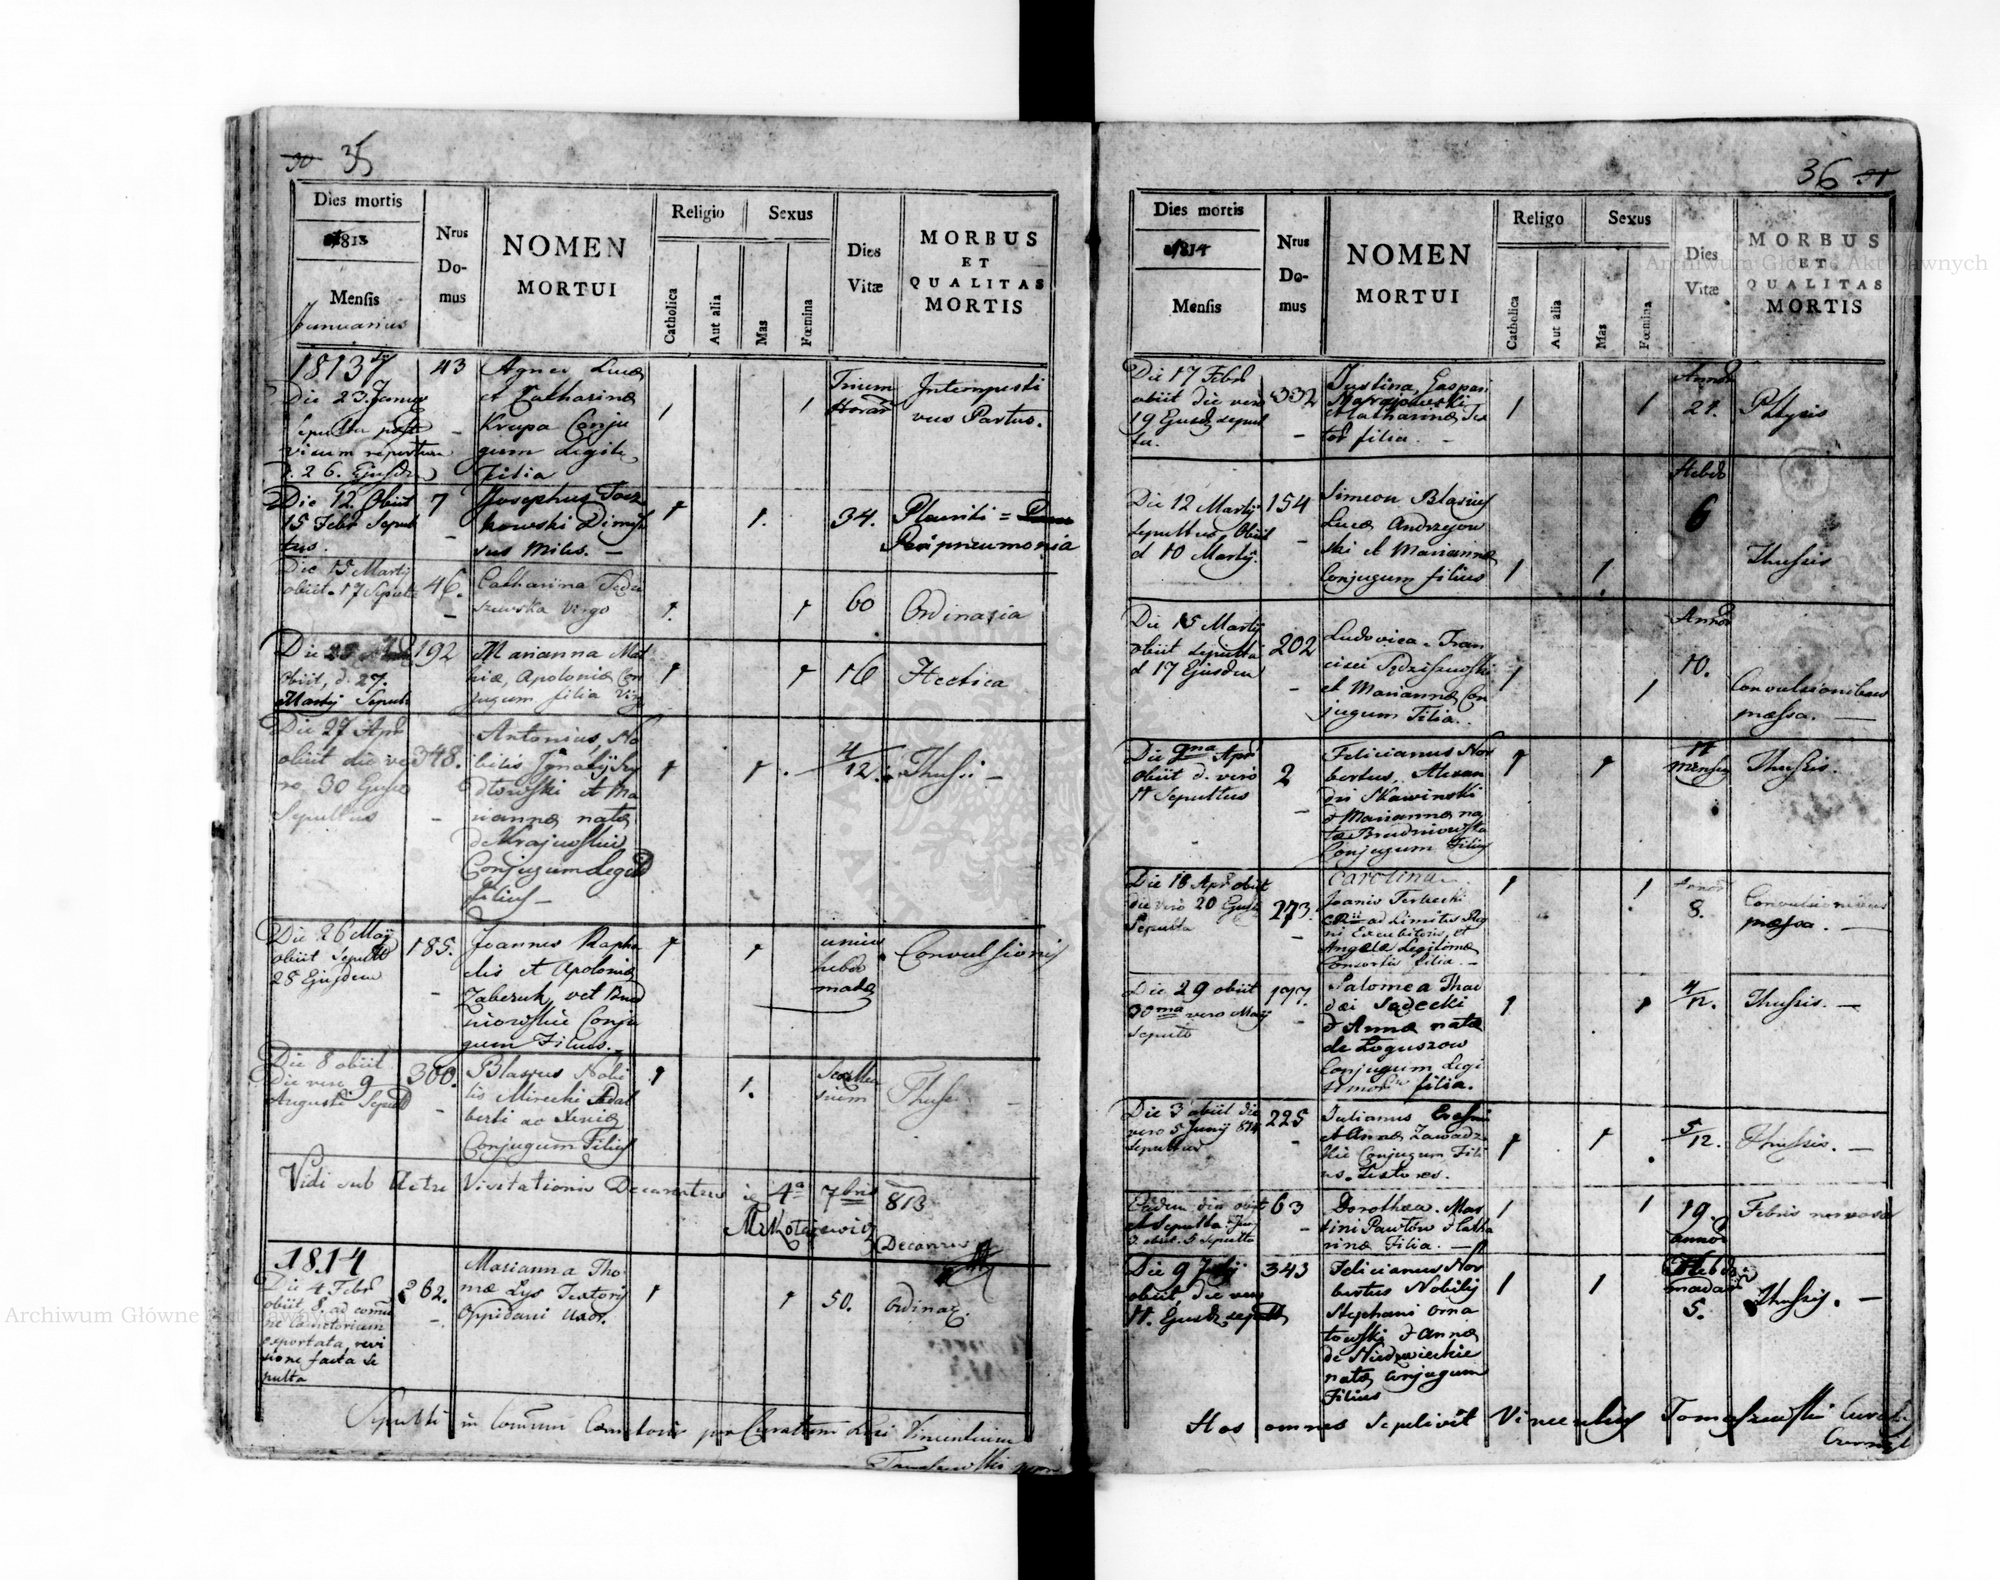 35
Dies mortis
1813
Mensis
Januarius
Nrus
Do-
mus
NOMEN
MORTUI
Religio
Catholica
Aut alia
Sexus
Mas
Fœmina
Dies
Vitæ
MORBUS
ET
QUALITAS
MORTIS
1813
Die 23. Januar
Sepulta post
visum repertum
d. 26. Ejusdem
43
Agnes Lucæ
et Catharinæ
Krupa Conju
gum Legiti.
Filia
1
1
Trium
Horar
Intempesti
vus Partus.
Die 12. Obiit
15 Febr Sepul
tus.
7
Josephus
kowski Dimis
sus Miles. —
1
1.
34.
Pleuriti =
Peripneumonia
Die 15 Martii
obiit. 17 Sepulta
46.
Catharina
szewska Virgo
1.
1
60
Ordinaria
Die
obiit, d. 27.
Martij Sepult
192
Marianna Mat
hiæ, Apoloniæ Con
jugum filia Virgo
1
1
16
Hectica
Die 27 Apr
obiit die ve
ro 30 Ejusd
Sepultus
348.
Antonius, No
bilis Ignatij Szy
dłowski et Ma
riannæ natæ
de Krajewskie
Conjugum Legit
filius —
1
1.
4/12.
Thussi —
Die 26 Maij
obiit Sepult
28 Ejusdem
185.
Joannes Rapha
elis et Apoloniæ
Zaberuk vel Bud
niowskie Conju
gum Filius. —
1
1
unius
hebdo
madæ
Convulsionis
Die 8 obiit
Die vero 9
Augusti Sepult
300.
Blasius Nobi
lis Mirecki Adal
berti ac Xeniæ
Conjugum Filius
1
1.
Sex Men
sium
Thussi
Vidi sub Actu Visitationis Decanatus ie 4ª 7bris 813
Decanus
1814
Die 4 Febr
obiit, 8. ad comu
ne cæmetorium
exportata, revi
sione facta Se
pulta
262.
Marianna Tho
mæ Lys Textoris
Oppidani Uxor.
1
1
50.
Ordinar.
Sepulti in Comuni Cæmetorio per Curatum Loci Vincentium
Tomaszewski
36
Dies mortis
1814
Mensis
Nrus
Do-
mus
NOMEN
MORTUI
Religo
Catholica
Aut alia
Sexus
Mas
Fœmina
Dies
Vitæ
MORBUS
ET
QUALITAS
MORTIS
Die 17 Febr
obiit die vero
19 Ejusd. sepul
ta.
332
Justina Gaspari
et Catharinæ Tex
tor filia. —
1
1
Annor
21.
Phtysis
Die 12 Martij
Sepultus, Obiit
d 10 Martij.
154
Simeon Blasius
Lucæ Andrzejow
ski et Mariannæ
Conjugum filius
1
1
Hebdo
6
Thussis
Die 15 Martij
obiit Sepulta
d 17 Ejusdem
202
Ludovica Fran
cisci
et Mariannæ Con
jugum Filia.
1
1
Annor
10.
Convulsionibus
pressa. —
Die 9na Apr
obiit d. vero
11 Sepultus
2
Felicianus Nor
bertus, Alexan
dri Skawinski
& Mariannæ na
tæ Brudniowska
Conjugum Filius
1
1
11
mensium
Thussis.
Die 18 Apr obiit
die vero 20 Ejusd
Sepulta
273.
Carolina
Joanis Terlecki
ad Limites Reg
ni Excubitoris, et
Angelæ Legitimæ
Consortis filia. —
1
1
Annor
8.
Convulsionibus
pressa. —
Die 29 obiit
30ma vero Maij
Sepulta
197.
Salomea Thad
dæi Sądecki
& Annæ natæ
de Łoguszow
Conjugum Legi
timor filia.
1
1
4/12.
Thussis. —
Die 3 obiit die
vero 5 Junij 814
Sepultus
225
Julianus
et Annæ Zawadz
kie Conjugum Fili
us. Textores.
1
1
5/12.
Thussis. —
Eadem die obiit
et Sepulta
63
Dorothea. Mar
tini Pawlow & Catha
rinæ Filia. —
1
1
19.
annor
Febris nervosa
Die 9 Julij
obiit, die vero
11. Ejusd. sepult
343
Felicianus Nor
bertus Nobilis
Stephani Orna
towski & Annæ
de Niedzwieckie
natæ Conjugum
Filius
1
1
Hebdo
madar
5.
Thussis. —
Hos omnes Sepelivit Vincentius Tomaszewski
Archiwum Główne Akt Dawnych
Archiwum Główne Akt Dawnych